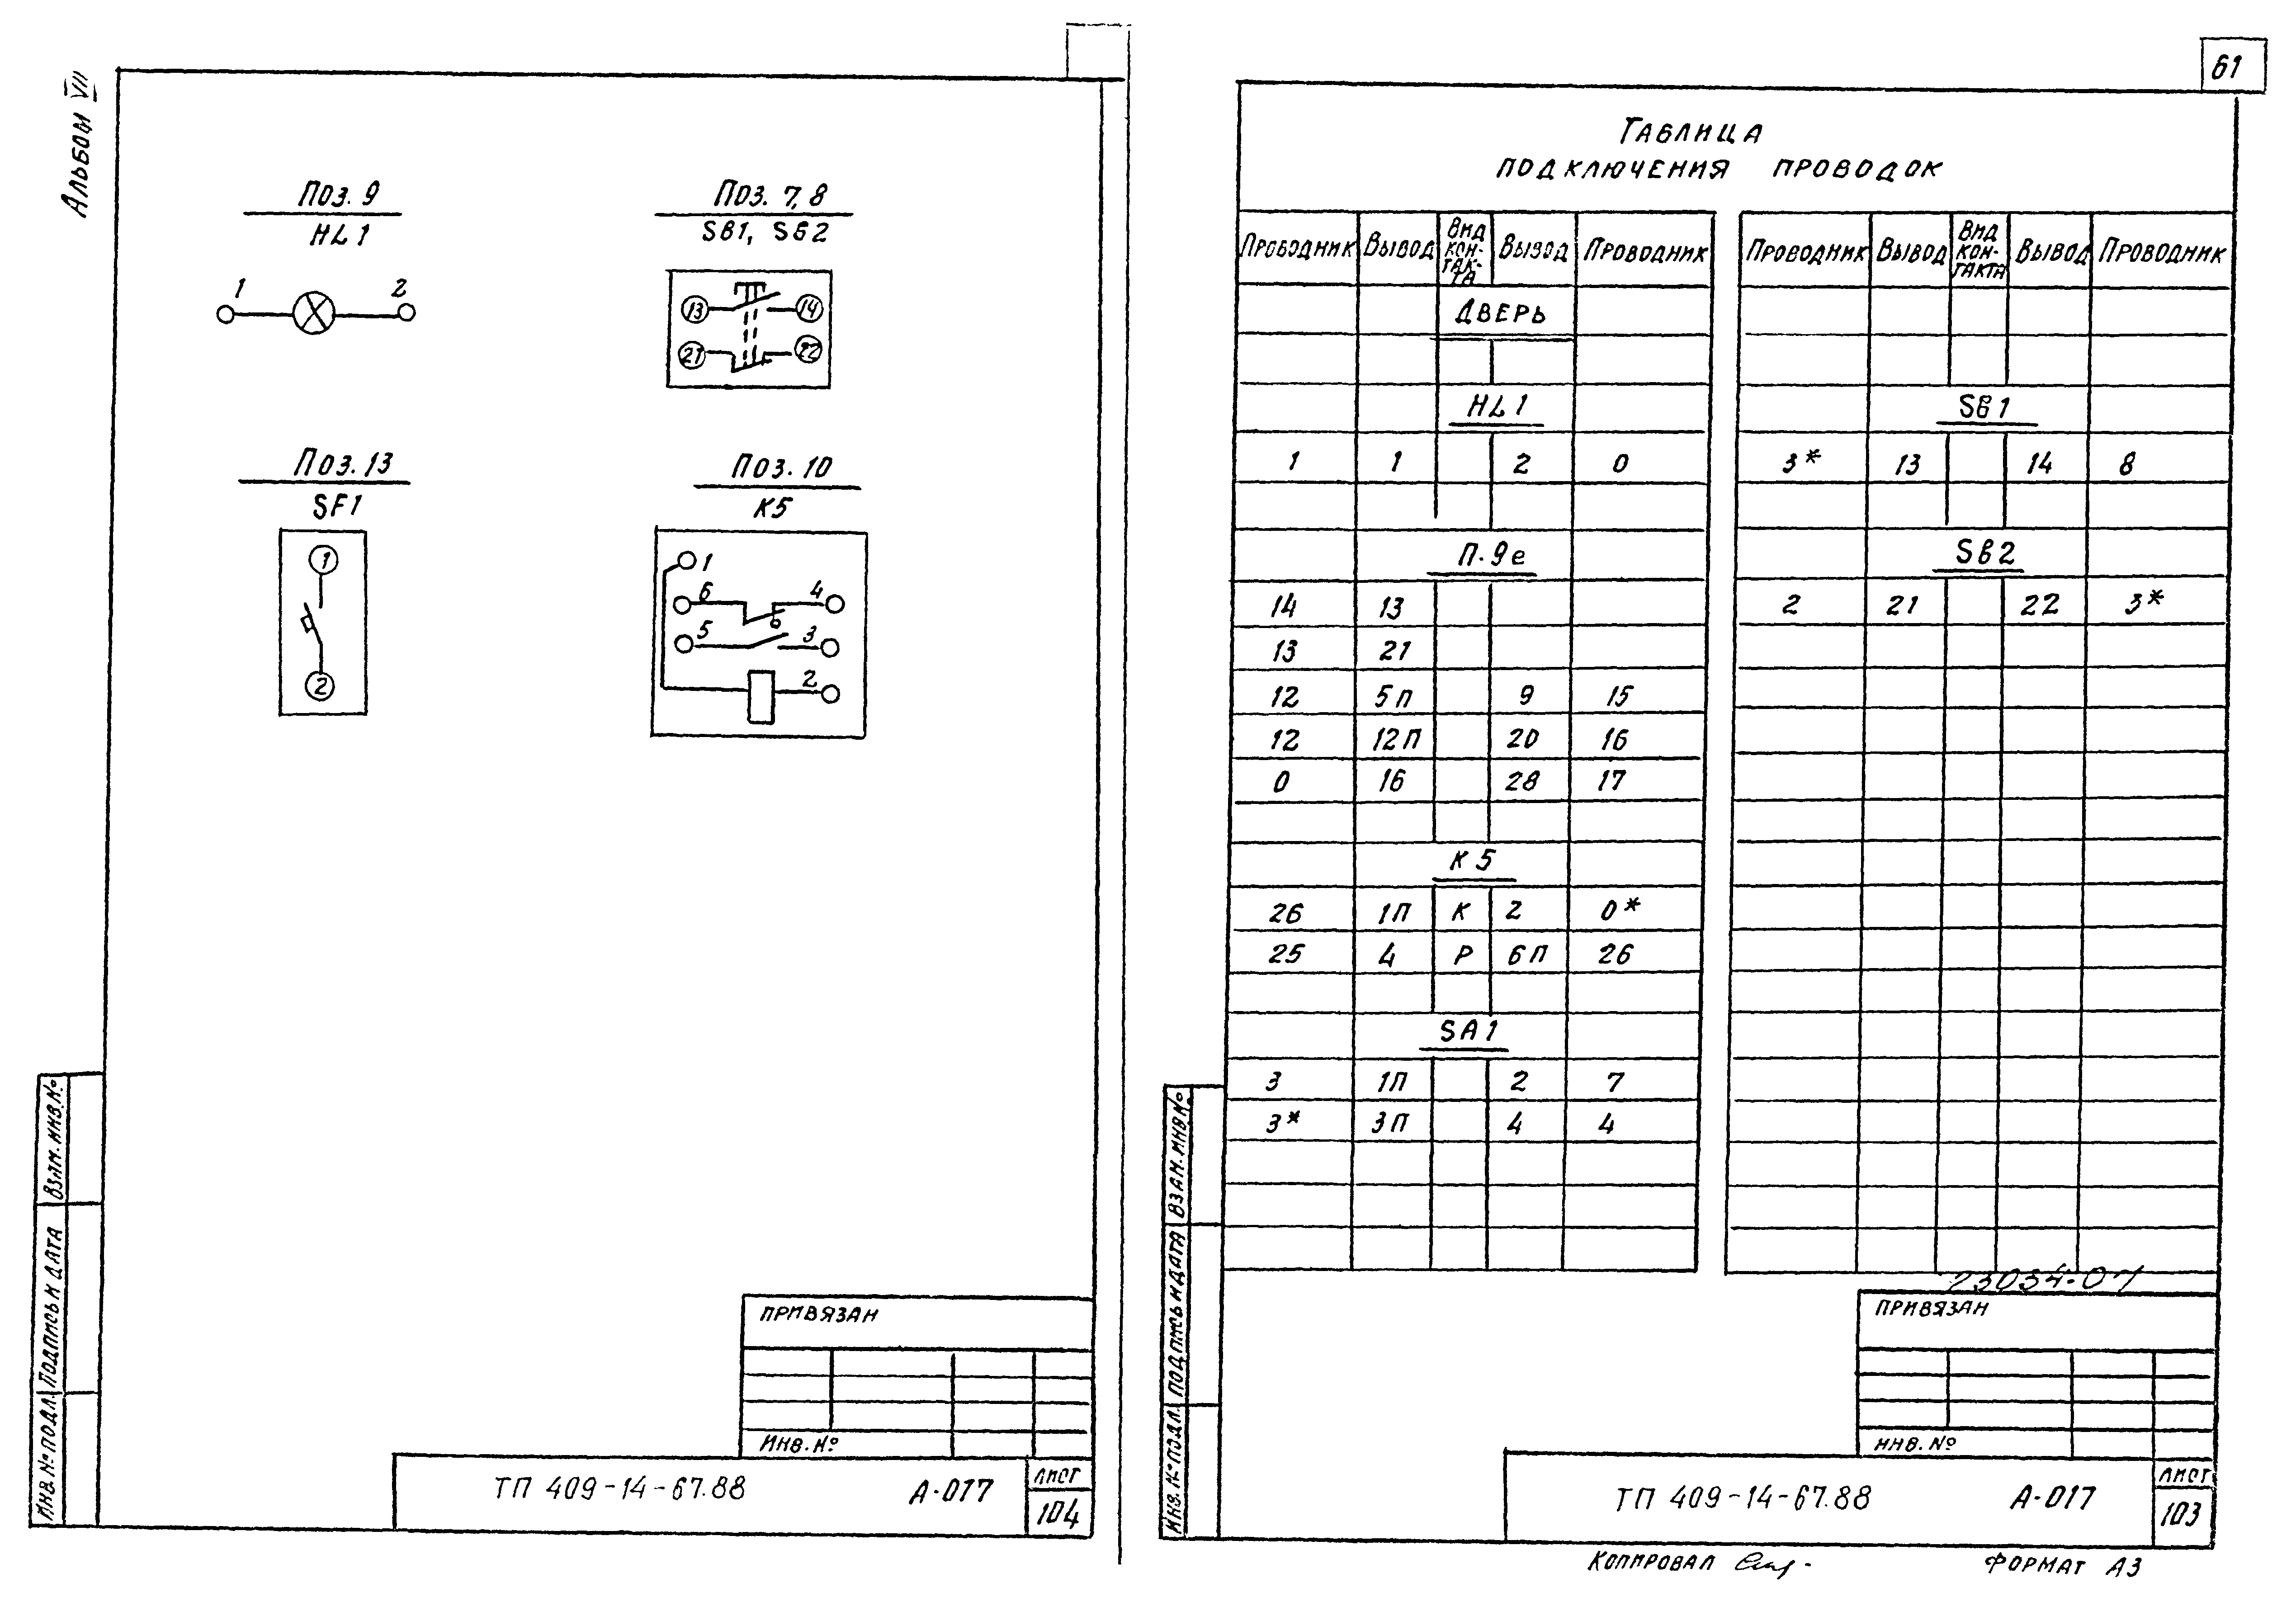 Альбом VII
Поз. 9
HL1
1 2
Поз. 7, 8
SB1, SB2
13 14
21 22
Поз. 13
SF1
1
2
Поз. 10
К5
1
6 4
5 3
2
Взам. инв. №
Подпись и дата
Инв. № подл.
Привязан
Инв. №
ТП 409-14-67.88 А-017
Лист
104
61
Таблица
подключения проводок
Проводник Вывод Вид кон-так-та Вывод Проводник
Дверь
HL1
1 1 2 0
П.9е
14 13
13 21
12 5П 9 15
12 12П 20 16
0 16 28 17
К5
26 1П К 2 0*
25 4 Р 6П 26
SA1
3 1П 2 7
3* 3П 4 4
Проводник Вывод Вид кон-такта Вывод Проводник
SB1
3* 13 14 8
SB2
2 21 22 3*
23034-07
Взам. инв №
Подпись и дата
Инв. № подл.
Привязан
Инв. №
ТП 409-14-67.88 А-017
Лист
103
Копировал
Формат А3